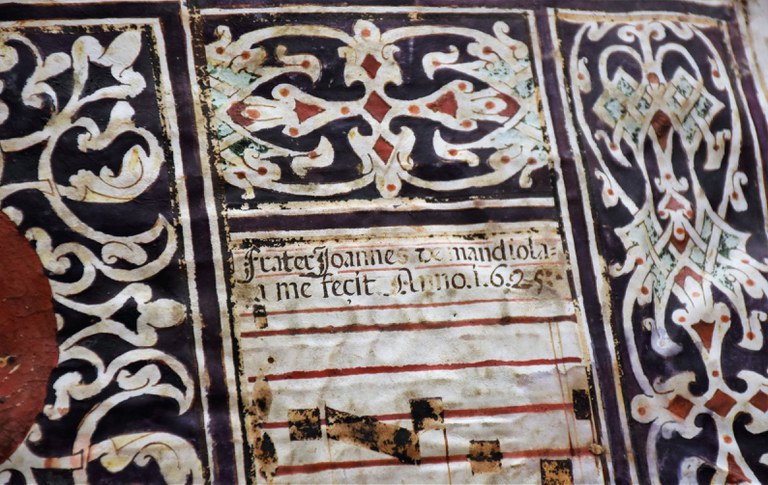 Frater Joannes de mandiola=
a me fecit. Anno. 1.6.2.5.